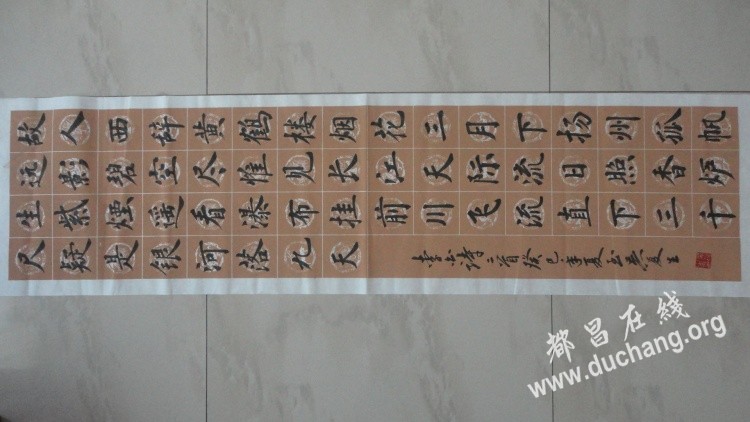 故人西辞黄鹤楼烟花三月下扬州孤帆
远影碧空尽惟见长江天际流日照香炉
生紫烟遥看瀑布挂前川飞流直下三千
尺疑是银河落九天
李白诗二首癸巳年夏
都昌在线
www.duchang.org